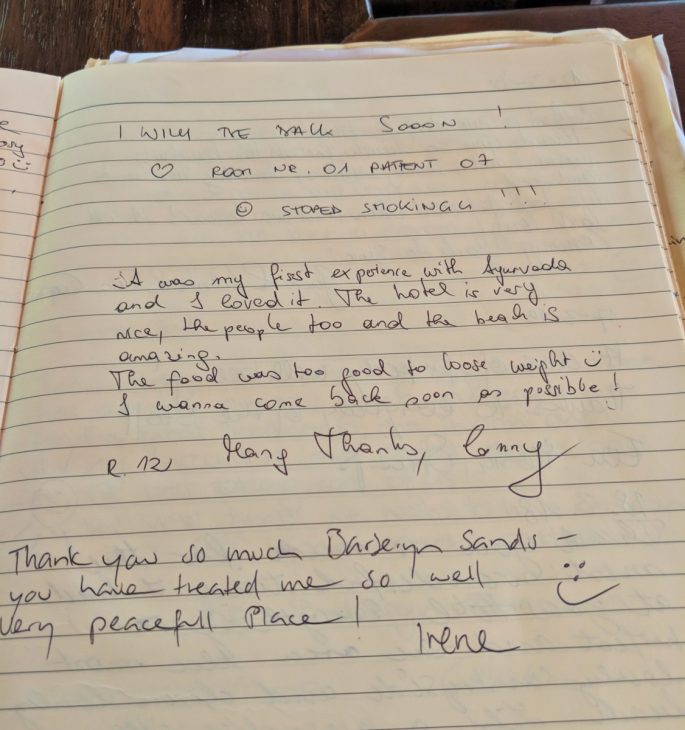 I WILL BE BACK SOOON !
♡ ROOM NR. 01 PATIENT 07
☺ STOPED SMOKINGG !!!
It was my first experience with Ayurveda
and I loved it. The hotel is very
nice, the people too and the beach is
amazing.
The food was too good to loose weight ☺
I wanna come back soon as possible!
R. 12 Many Thanks, Conny
Thank you so much Sands –
you have treated me so well
Very peacefull Place!
Irene